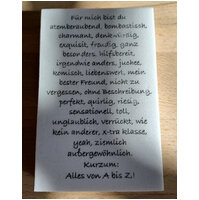 Für mich bist du
atemberaubend, bombastisch,
charmant, denkwürdig,
exquisit, fraudig, ganz
besonders, hilfsbereit,
irgendwie anders, juchee,
komisch, liebenswert, mein
bester Freund, nicht zu
vergessen, ohne Beschreibung,
perfekt, quirlig, riesig,
sensationell, toll,
unglaublich, verrückt, wie
kein anderer, x-tra klasse,
yeah, ziemlich
außergewöhnlich.
Kurzum:
Alles von A bis Z!